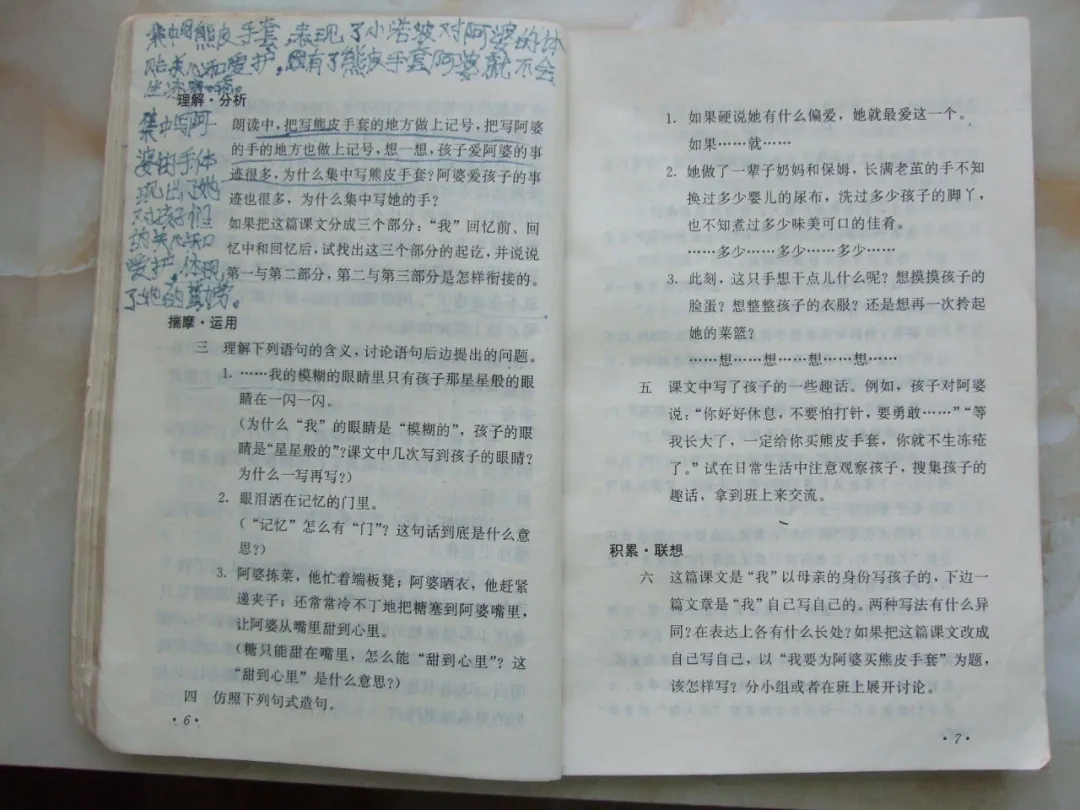 集中写熊皮手套,表现了小诺坡对阿婆的体
贴关心和爱护,因有了熊皮手套阿婆就不会
生冻疮
理解·分析
集中写阿
婆的手体
现出了她
对孩子们
的关心和
爱护,体现
了她的
朗读中,把写熊皮手套的地方做上记号,把写阿婆
的手的地方也做上记号,想一想,孩子爱阿婆的事
迹很多,为什么集中写熊皮手套?阿婆爱孩子的事
迹也很多,为什么集中写她的手?
如果把这篇课文分成三个部分:“我”回忆前、回
忆中和回忆后,试找出这三个部分的起讫,并说说
第一与第二部分,第二与第三部分是怎样衔接的。
揣摩·运用
三 理解下列语句的含义,讨论语句后边提出的问题。
1. ……我的模糊的眼睛里只有孩子那星星般的眼
睛在一闪一闪。
(为什么“我”的眼睛是“模糊的”,孩子的眼
睛是“星星般的”?课文中几次写到孩子的眼睛?
为什么一写再写?)
2. 眼泪洒在记忆的门里。
(“记忆”怎么有“门”?这句话到底是什么意
思?)
3. 阿婆拣菜,他忙着端板凳;阿婆晒衣,他赶紧
递夹子;还常常冷不丁地把糖塞到阿婆嘴里,
让阿婆从嘴里甜到心里。
(糖只能甜在嘴里,怎么能“甜到心里”?这
“甜到心里”是什么意思?)
四 仿照下列句式造句。
·6·
1. 如果硬说她有什么偏爱,她就最爱这一个。
如果……就……
2. 她做了一辈子奶妈和保姆,长满老茧的手不知
换过多少婴儿的尿布,洗过多少孩子的脚丫,
也不知煮过多少味美可口的佳肴。
……多少……多少……多少……
3. 此刻,这只手想干点儿什么呢?想摸摸孩子的
脸蛋?想整整孩子的衣服?还是想再一次拎起
她的菜篮?
……想……想……想……想……
五 课文中写了孩子的一些趣话。例如,孩子对阿婆
说:“你好好休息,不要怕打针,要勇敢……”“等
我长大了,一定给你买熊皮手套,你就不生冻疮
了。”试在日常生活中注意观察孩子,搜集孩子的
趣话,拿到班上来交流。
积累·联想
六 这篇课文是“我”以母亲的身份写孩子的,下边一
篇文章是“我”自己写自己的。两种写法有什么异
同?在表达上各有什么长处?如果把这篇课文改成
自己写自己,以“我要为阿婆买熊皮手套”为题,
该怎样写?分小组或者在班上展开讨论。
·7·